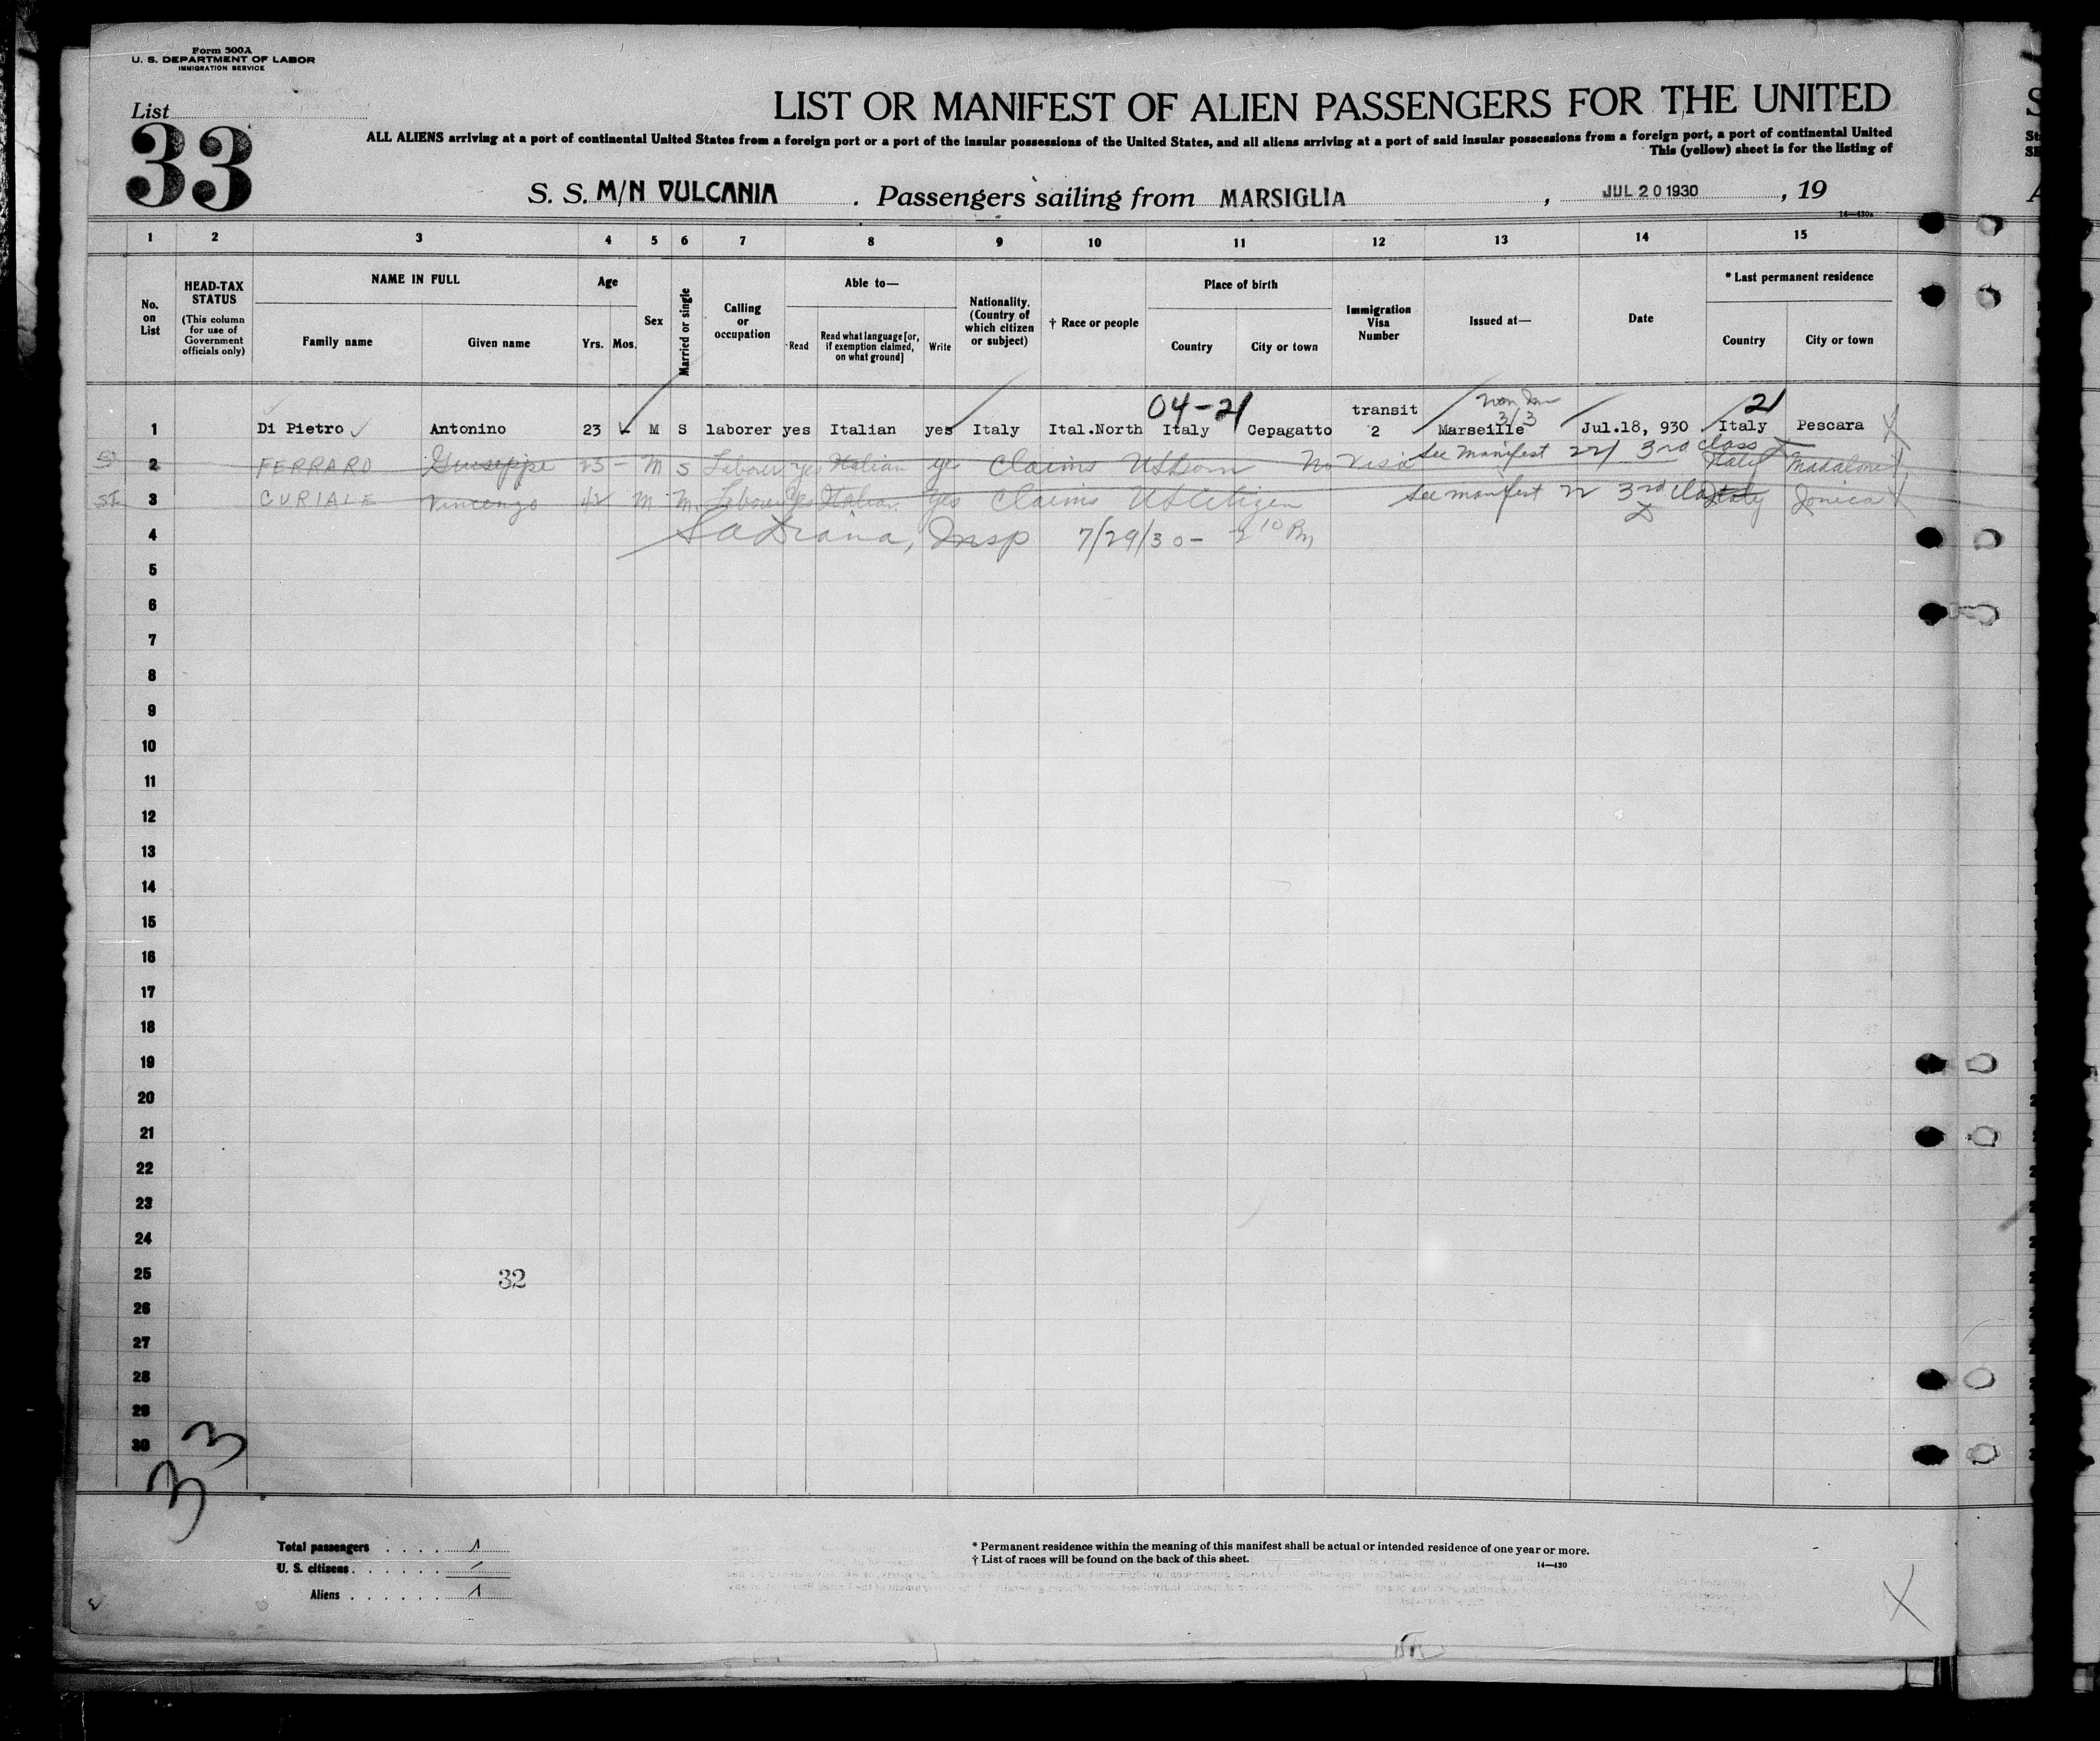 Form 500A
U. S. DEPARTMENT OF LABOR
IMMIGRATION SERVICE
List
33
LIST OR MANIFEST OF ALIEN PASSENGERS FOR THE UNITED
ALL ALIENS arriving at a port of continental United States from a foreign port or a port of the insular possessions of the United States, and all aliens arriving at a port of said insular possessions from a foreign port, a port of continental United
This (yellow) sheet is for the listing of
S. S. M/N VULCANIA . Passengers sailing from MARSIGLIA , JUL 20 1930 , 19
14—430a
1 2 3 4 5 6 7 8 9 10 11 12 13 14 15
No. on List
HEAD-TAX STATUS (This column for use of Government officials only)
NAME IN FULL
Family name Given name
Age
Yrs. Mos.
Sex
Married or single
Calling or occupation
Able to—
Read
Read what language [or, if exemption claimed, on what ground]
Write
Nationality. (Country of which citizen or subject)
† Race or people
Place of birth
Country City or town
Immigration Visa Number
Issued at—
Date
* Last permanent residence
Country City or town
04-21
3/3
21
1 Di Pietro Antonino 23 M S laborer yes Italian yes Italy Ital.North Italy Cepagatto transit 2 Marseille Jul.18, 930 Italy Pescara
SI 2 FERRARO Giuseppe 23 - M S Laborer yes Italian yes Claims US born No Visa See Manifest 22/ 3rd Class Italy Madaloni
SI 3 CURIALE Vincenzo 42 M M Laborer yes Italian yes Claims US Citizen See manifest 22 3rd Class Italy Jonica
4 Insp 7/29/30- 2 10 Pm
5
6
7
8
9
10
11
12
13
14
15
16
17
18
19
20
21
22
23
24
25 32
26
27
28
29
30
33
Total passengers . . . . 1
U. S. citizens . . . . . . /
Aliens . . . . . . 1
* Permanent residence within the meaning of this manifest shall be actual or intended residence of one year or more.
† List of races will be found on the back of this sheet.
14—430